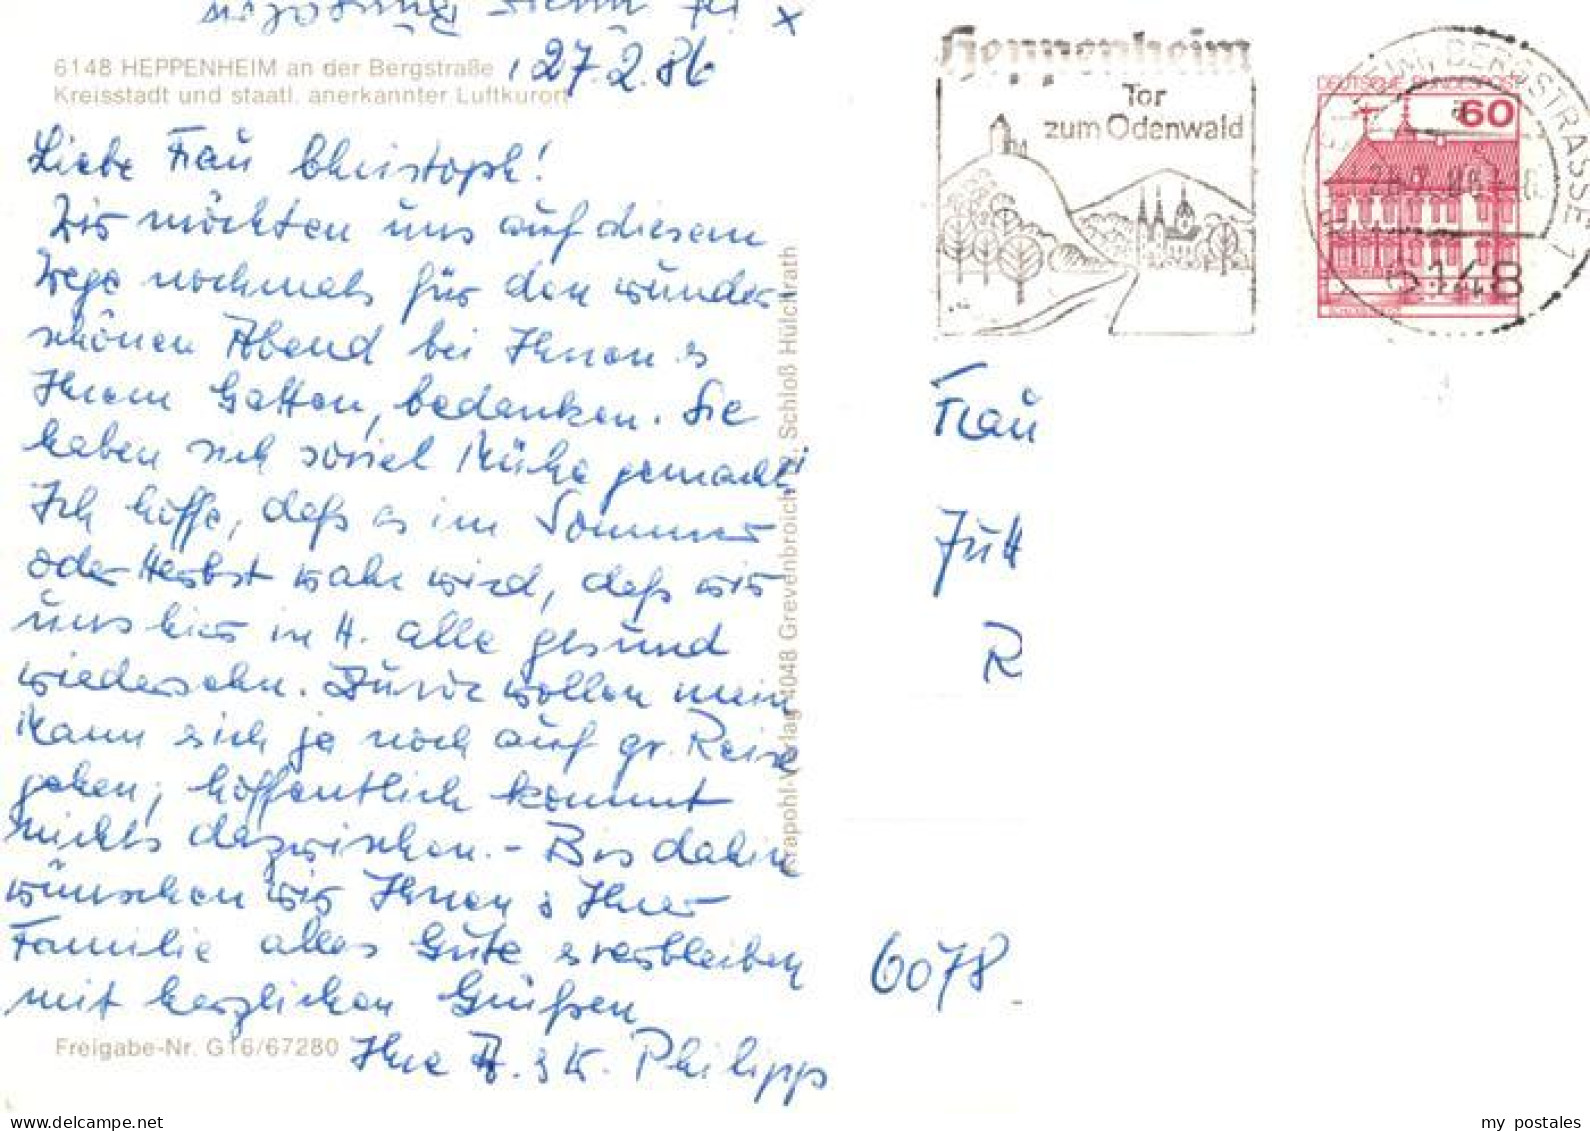 6148 HEPPENHEIM an der Bergstraße, 27.2.86
Kreisstadt und staatl. anerkannter Luftkurort
Liebe Frau Christoph!
Wir möchten uns auf diesem
Wege nochmals für den wunder
schönen Abend bei Ihnen &
Ihrem Gatten, bedanken. Sie
haben sich soviel Mühe gemacht!
Ich hoffe, daß es im Sommer
oder Herbst wahr wird, daß wir
uns hier in H. alle gesund
wiedersehn. Zuvor wollen mein
Mann & ich ja noch auf gr. Reise
gehen; hoffentlich kommt
nichts dazwischen. - Bis dahin
wünschen wir Ihnen & Ihrer
Familie alles Gute & verbleiben
mit herzlichen Grüßen
Ihre A. & K. Philipp
Freigabe-Nr. G16/67280
Krapohl-Verlag 4048 Grevenbroich 12, Schloß Hülchrath
Heppenheim
Tor
zum Odenwald
DEUTSCHE BUNDESPOST
60
HEPPENHEIM, BERGSTRASSE 1
6148
Frau
Jutt
R
6078
my postales